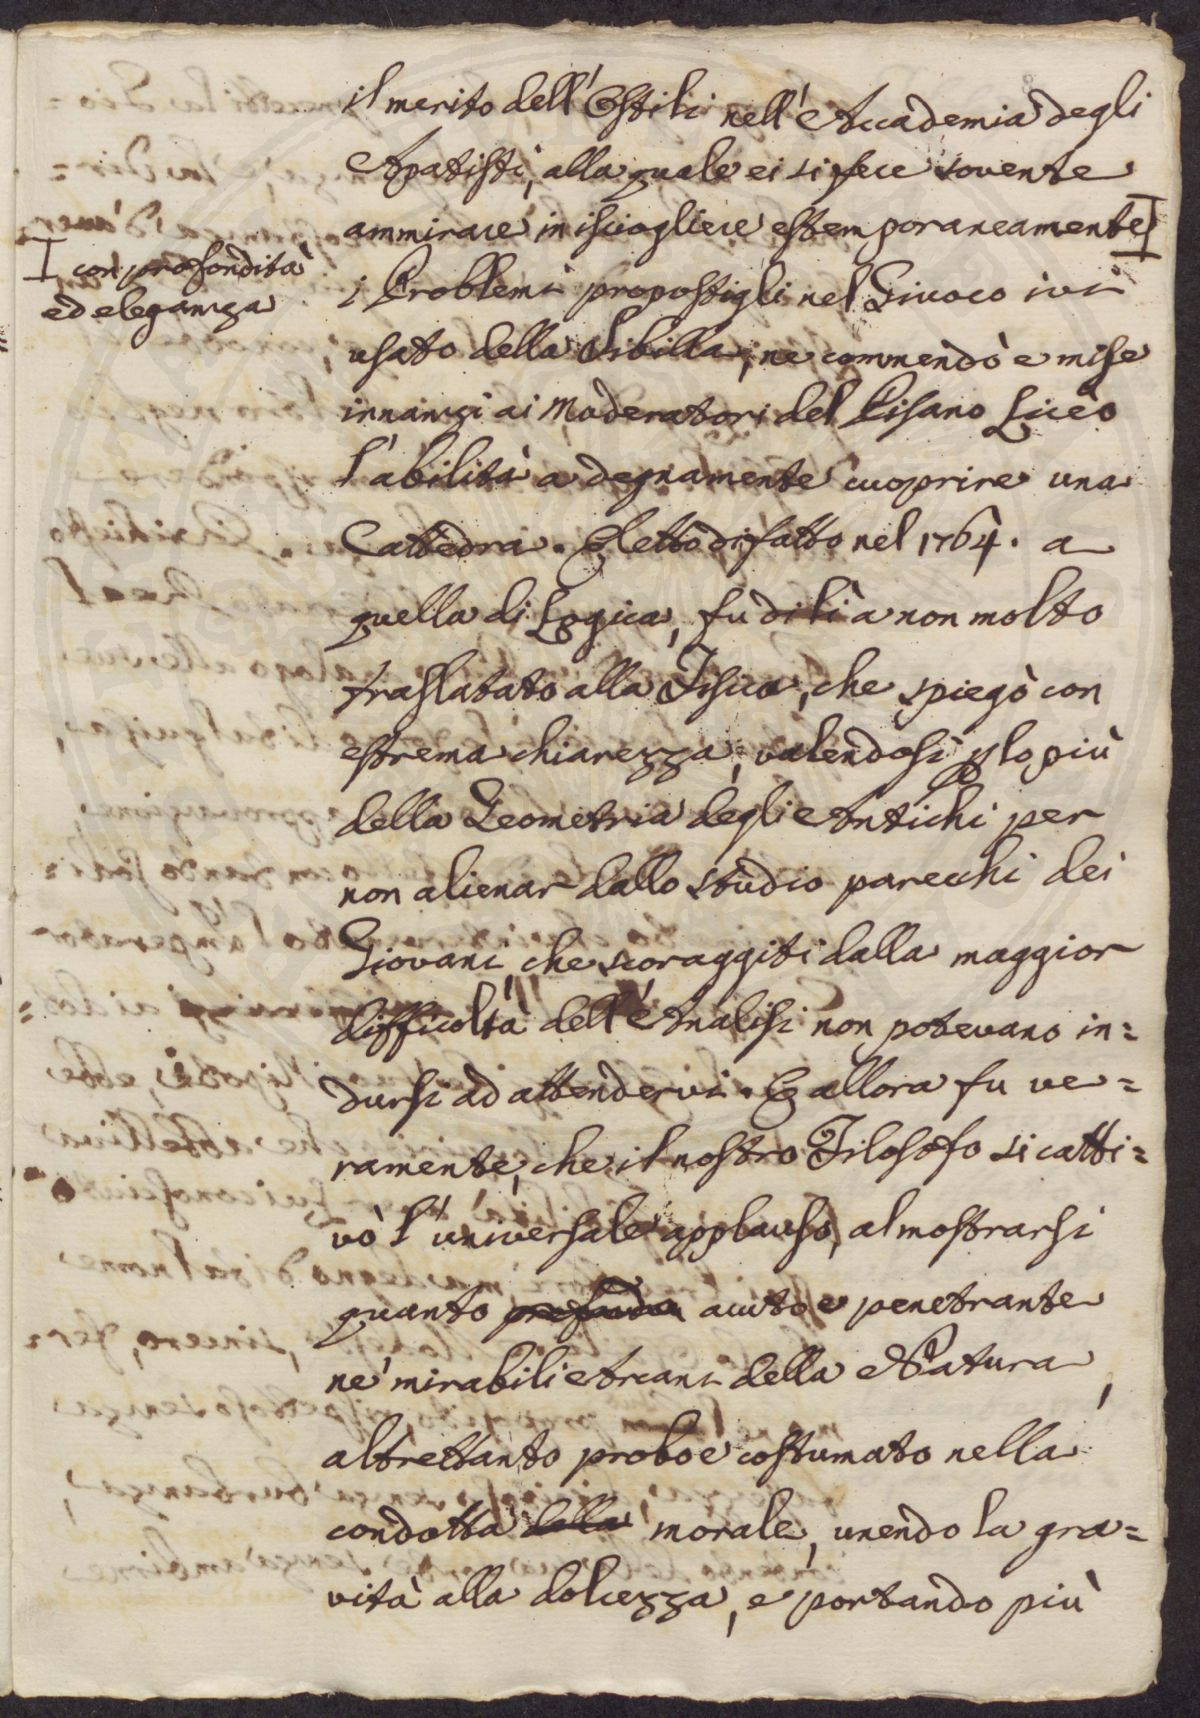 il merito dell'Ostili nell'Accademia degli
Apatisti, alla quale ei si fece sovente
ammirare in isciogliere estemporaneamente I
I con profondità
ed eleganza
i Problemi propostigli nel Giuoco ivi
usato della Sibilla, ne commendò e mise
innanzi ai Moderatori del Pisano Liceo
l'abilità a degnamente cuoprire una
Cattedra. Eletto difatto nel 1764. a
quella di Logica, fu di lì a non molto
traslatato alla Fisica, che spiegò con
estrema chiarezza, valendosi p lo più
della Geometria degli Antichi per
non alienar dallo studio parecchi dei
Giovani, che scoraggiti dalla maggior
difficoltà dell'Analisi non potevano in=
dursi ad attendervi. E allora fu ve=
ramente, che il nostro Filosofo si catti=
vò l'universale applauso, al mostrarsi
quanto acuto e penetrante
ne' mirabili Arcani della Natura,
altrettanto probo e costumato nella
condotta della morale, unendo la gra=
vità alla dolcezza, e portando più